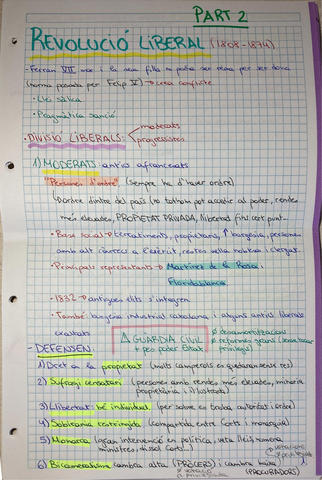 PART 2
REVOLUCIÓ LIBERAL (1808-1874)
·Ferran VII mor i la seva filla no podria ser reina per ser dona
(norma posada per Felip V) → crea conflicte
·Llei sàlica
·Pragmàtica sanció
·DIVISIÓ LIBERALS: moderats
progressistes
1) MODERATS: antics afrancesats
"Persones d'ordre" (sempre ha d'haver ordre)
Dordre dintre del país (no tothom pot accedir al poder, rendes
més elevades, PROPIETAT PRIVADA, llibertat fins cert punt.
·Base social→ terratinents, propietaris, ↑ burgesia, persones
amb alt càrrec a l'exèrcit, restes vella noblesa i clergat.
·Principals representants → Martínez de la Rosa i
Floridablanca
·1832 → antigues elits s'integren
·També: burgesia industrial catalana i alguns antics liberals
exaltats
△ GUARDIA CIVIL
+ peo poder Estat
desamortitzacions
reformes grans
privilegis
-DEFENSEN:
1) Dret a la propietat (molts camperols es quedaran sense res)
2) Sufragi censatari (persones amb rendes més elevades, minoria
propietària i il·lustrada)
3) Llibertat individual (per sobre es troba autoritat i ordre)
4) Sobirania restringida (compartida entre Corts i monarquia)
5) Monarca (gran intervenció en política, veta lleis, nomena
ministres, dissol Corts...)
6) Bicameralisme (cambra alta (PRÒCERS) i cambra baixa
(PROCURADORS)